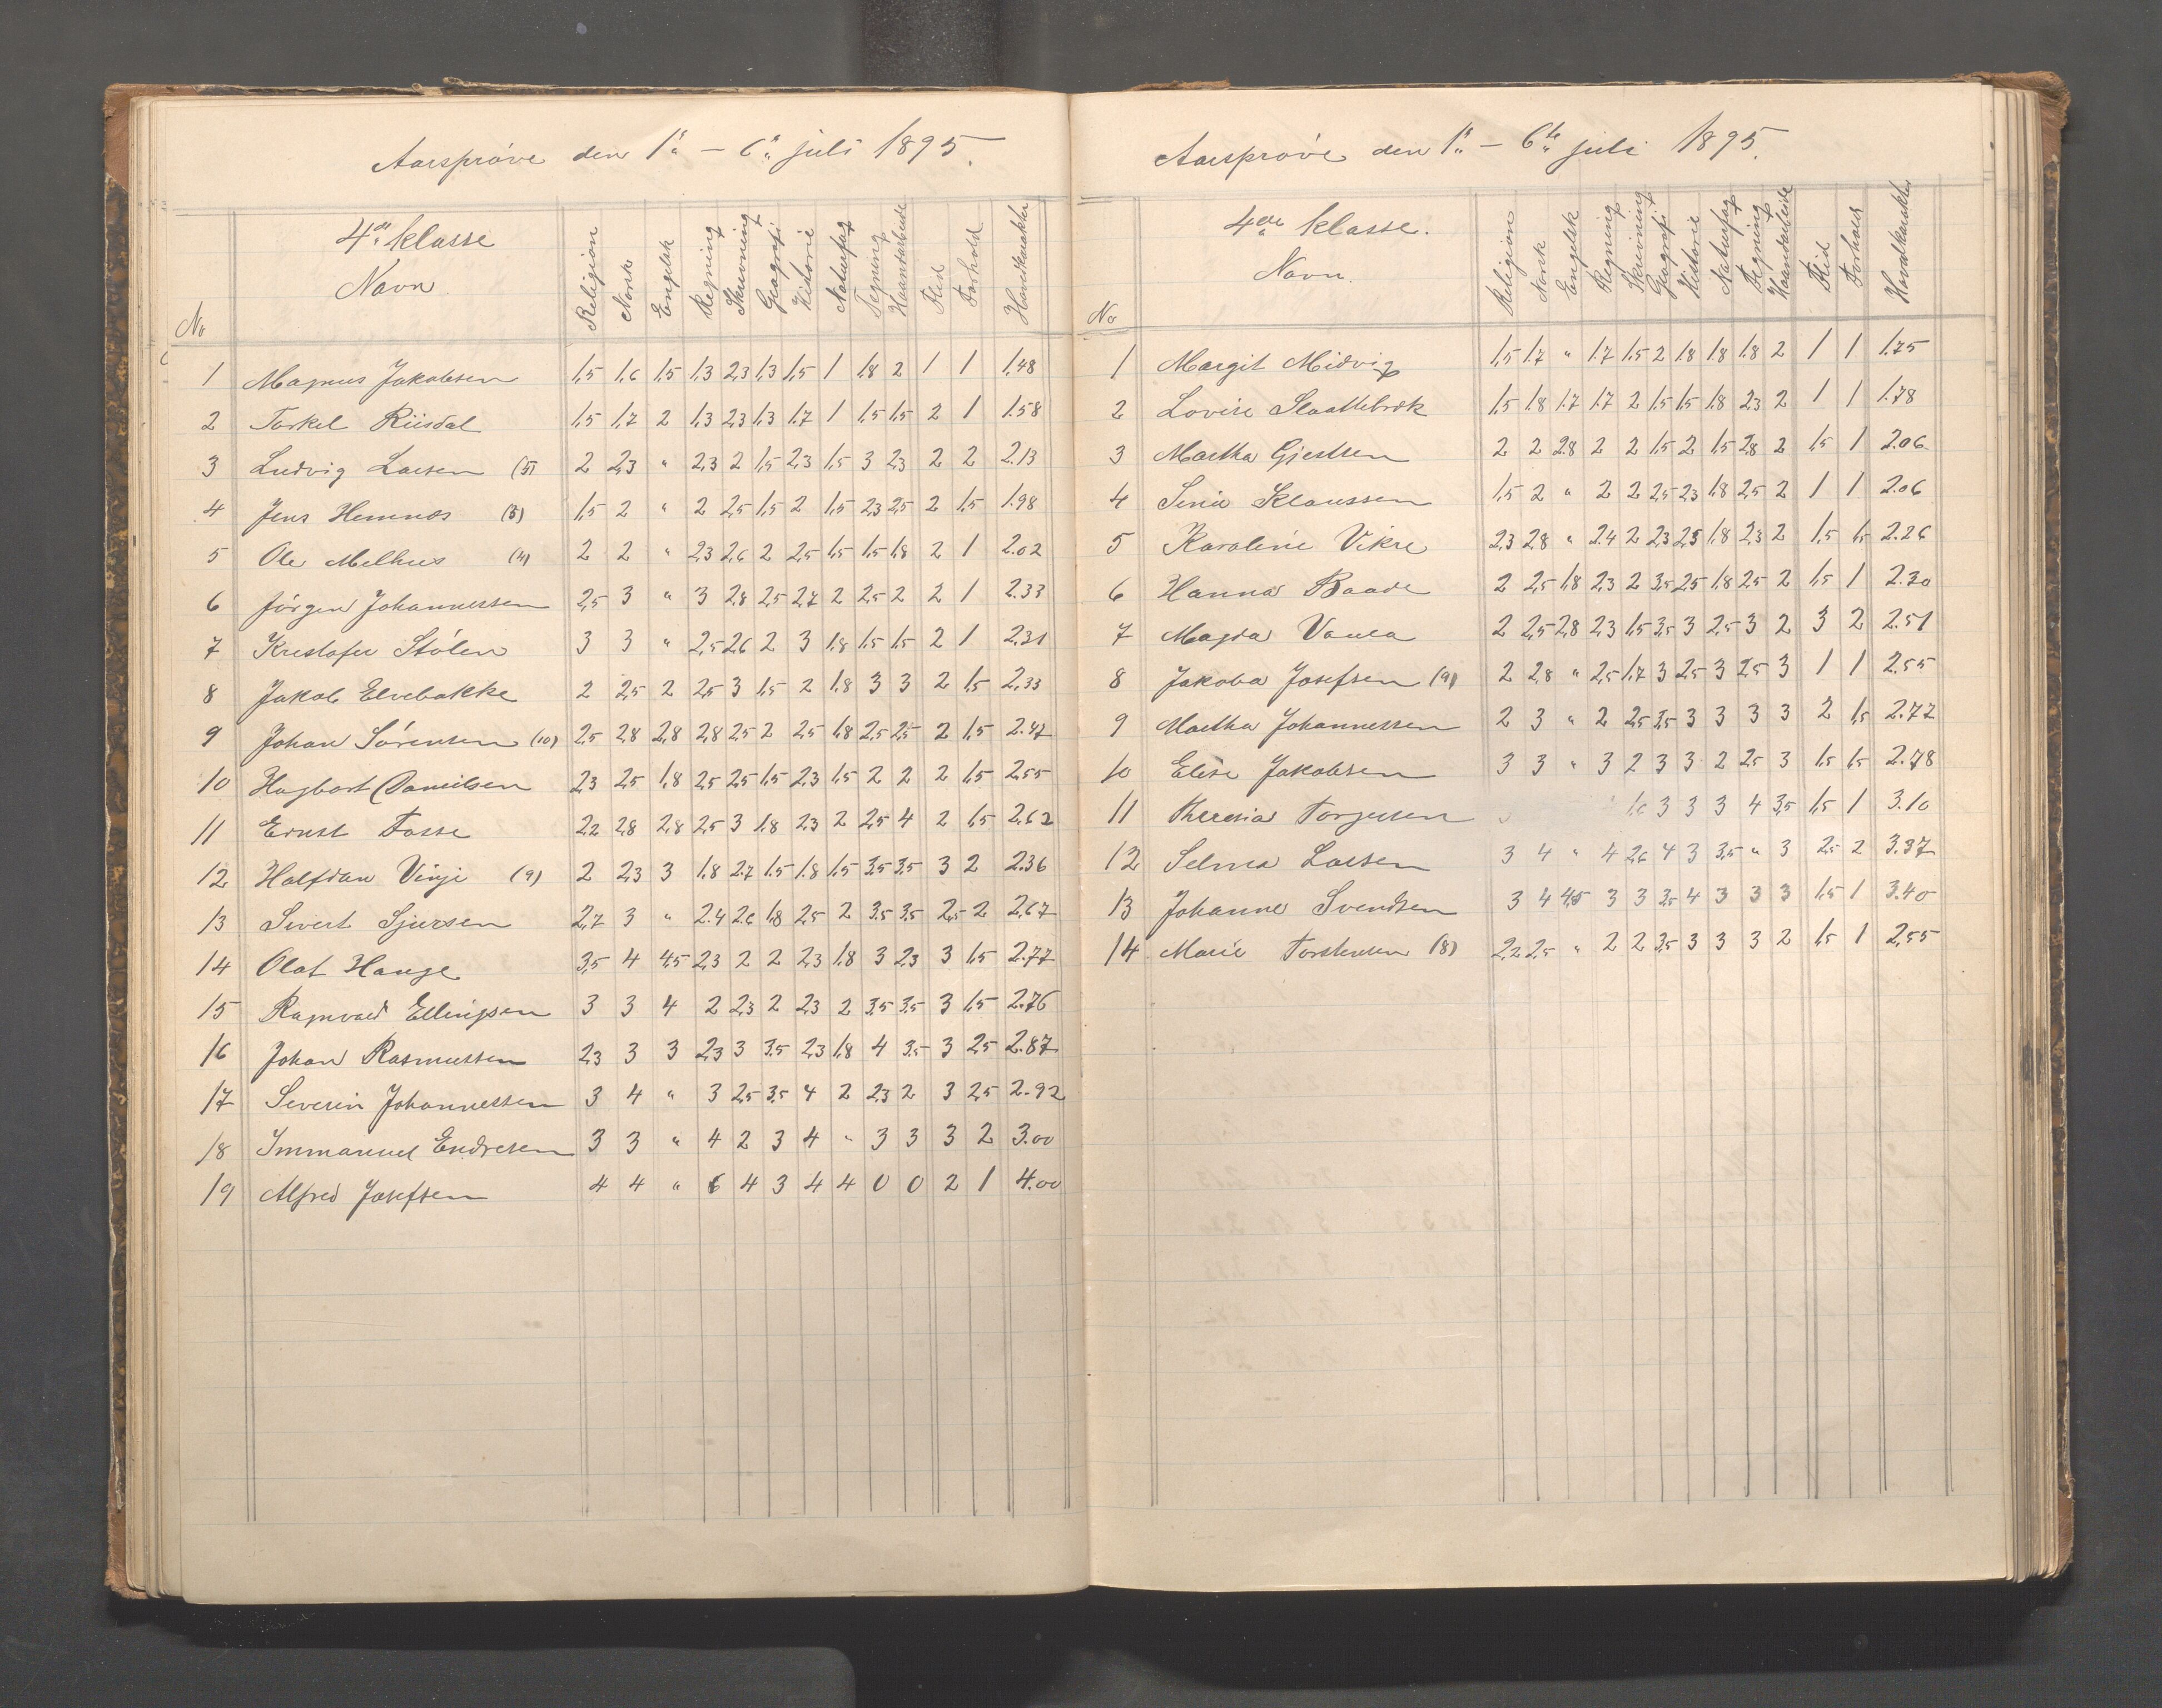 Aarsprøve den 1ste – 6te juli 1895.
4de klasse
Navn
No Religion Norsk Engelsk Regning Skrivning Geografi Historie Naturfag Tegning Haandarbeide Flid Forhold Hovedkarakter
1 Magnus Jakobsen 1,5 1,6 1,5 1,3 2,3 1,3 1,5 1 1,8 2 1 1 1.48
2 Torkel Riisdal 1,5 1,7 2 1,3 2,3 1,3 1,7 1 1,5 1,5 2 1 1.58
3 Ludvig Larsen (5) 2 2,3 " 2,3 2 1,5 2,3 1,5 3 2,3 2 2 2.13
4 Jens Hemnes (5) 1,5 2 " 2 2,5 1,5 2 1,5 2,3 2,5 2 1,5 1.98
5 Ole Melhus (4) 2 2 " 2,3 2,6 2 2,5 1,5 1,5 1,8 2 1 2.02
6 Jørgen Johannessen 2,5 3 " 3 2,8 2,5 2,7 2 2,5 2 2 1 2.33
7 Kristofer Stølen 3 3 " 2,5 2,6 2 3 1,8 1,5 1,5 2 1 2.31
8 Jakob Elvebakke 2 2,5 2 2,5 3 1,5 2 1,8 3 3 2 1,5 2.33
9 Johan Sørensen (10) 2,5 2,8 2,8 2,8 2,5 2 2,5 1,8 2,5 2,5 2 1,5 2.47
10 Hagbart Danielsen 2,3 2,5 1,8 2,5 2,5 1,5 2,3 1,5 2 2 2 1,5 2.55
11 Ernst Fosse 2,2 2,8 2,8 2,5 3 1,8 2,3 2 2,5 4 2 1,5 2.62
12 Halfdan Vinje (9) 2 2,3 3 1,8 2,7 1,5 1,8 1,5 3,5 3,5 3 2 2.36
13 Sivert Sjursen 2,7 3 " 2,4 2,6 1,8 2,5 2 3,5 3,5 2,5 2 2.67
14 Olaf Hauge 3,5 4 4,5 2,3 2 2 2,3 1,8 3 2,3 3 1,5 2.77
15 Ragnvald Ellingsen 3 3 4 2 2,3 2 2,3 2 3,5 3,5 3 1,5 2.76
16 Johan Rasmussen 2,3 3 3 2,3 3 3,5 2,3 1,8 4 3,5 3 2,5 2.87
17 Severin Johannessen 3 4 " 3 2,5 3,5 4 2 2,3 2 3 2,5 2.92
18 Immanuel Endresen 3 3 " 4 2 3 4 " 3 3 3 2 3.00
19 Alfred Josefsen 4 4 " 6 4 3 4 4 0 0 2 1 4.00
Aarsprøve den 1ste – 6te juli 1895.
4de klasse.
Navn.
No Religion Norsk Engelsk Regning Skrivning Geografi Historie Naturfag Tegning Haandarbeide Flid Forhold Hovedkarakter
1 Margit Midvig 1,5 1,7 " 1,7 1,5 2 1,8 1,8 1,8 2 1 1 1.75
2 Lovise Slaattebrek 1,5 1,8 1,7 1,7 2 1,5 1,5 1,8 2,3 2 1 1 1.78
3 Martha Gjestsen 2 2 2,8 2 2 1,5 2 1,5 2,8 2 1,5 1 2.06
4 Sina Klaussen 1,5 2 " 2 2 2,5 2,3 1,8 2,5 2 1 1 2.06
5 Karoline Vikre 2,3 2,8 " 2,4 2 2,3 2,5 1,8 2,3 2 1,5 1,5 2.26
6 Hanna Baade 2 2,5 1,8 2,3 2 3,5 2,5 1,8 2,5 2 1,5 1 2.30
7 Magda Vaula 2 2,5 2,8 2,3 1,5 3,5 3 2,5 3 2 3 2 2.51
8 Jakoba Josefsen (9) 2 2,8 " 2,5 1,7 3 2,5 3 2,5 3 1 1 2.55
9 Martha Johannessen 2 3 " 2 2,5 3,5 3 3 3 3 2 1,5 2.77
10 Elise Jakobsen 3 3 " 3 2 3 3 2 2,5 3 1,5 1,5 2.78
11 Theresia Torgersen 1,6 3 3 3 4 3,5 1,5 1 3.10
12 Selma Larsen 3 4 " 4 2,6 4 3 3,5 " 3 2,5 2 3.37
13 Johanne Svendsen 3 4 4,5 3 3 3,5 4 3 3 3 1,5 1 3.40
14 Marie Torstensen (8) 2,2 2,5 " 2 2 3,5 3 3 3 2 1,5 1 2.55